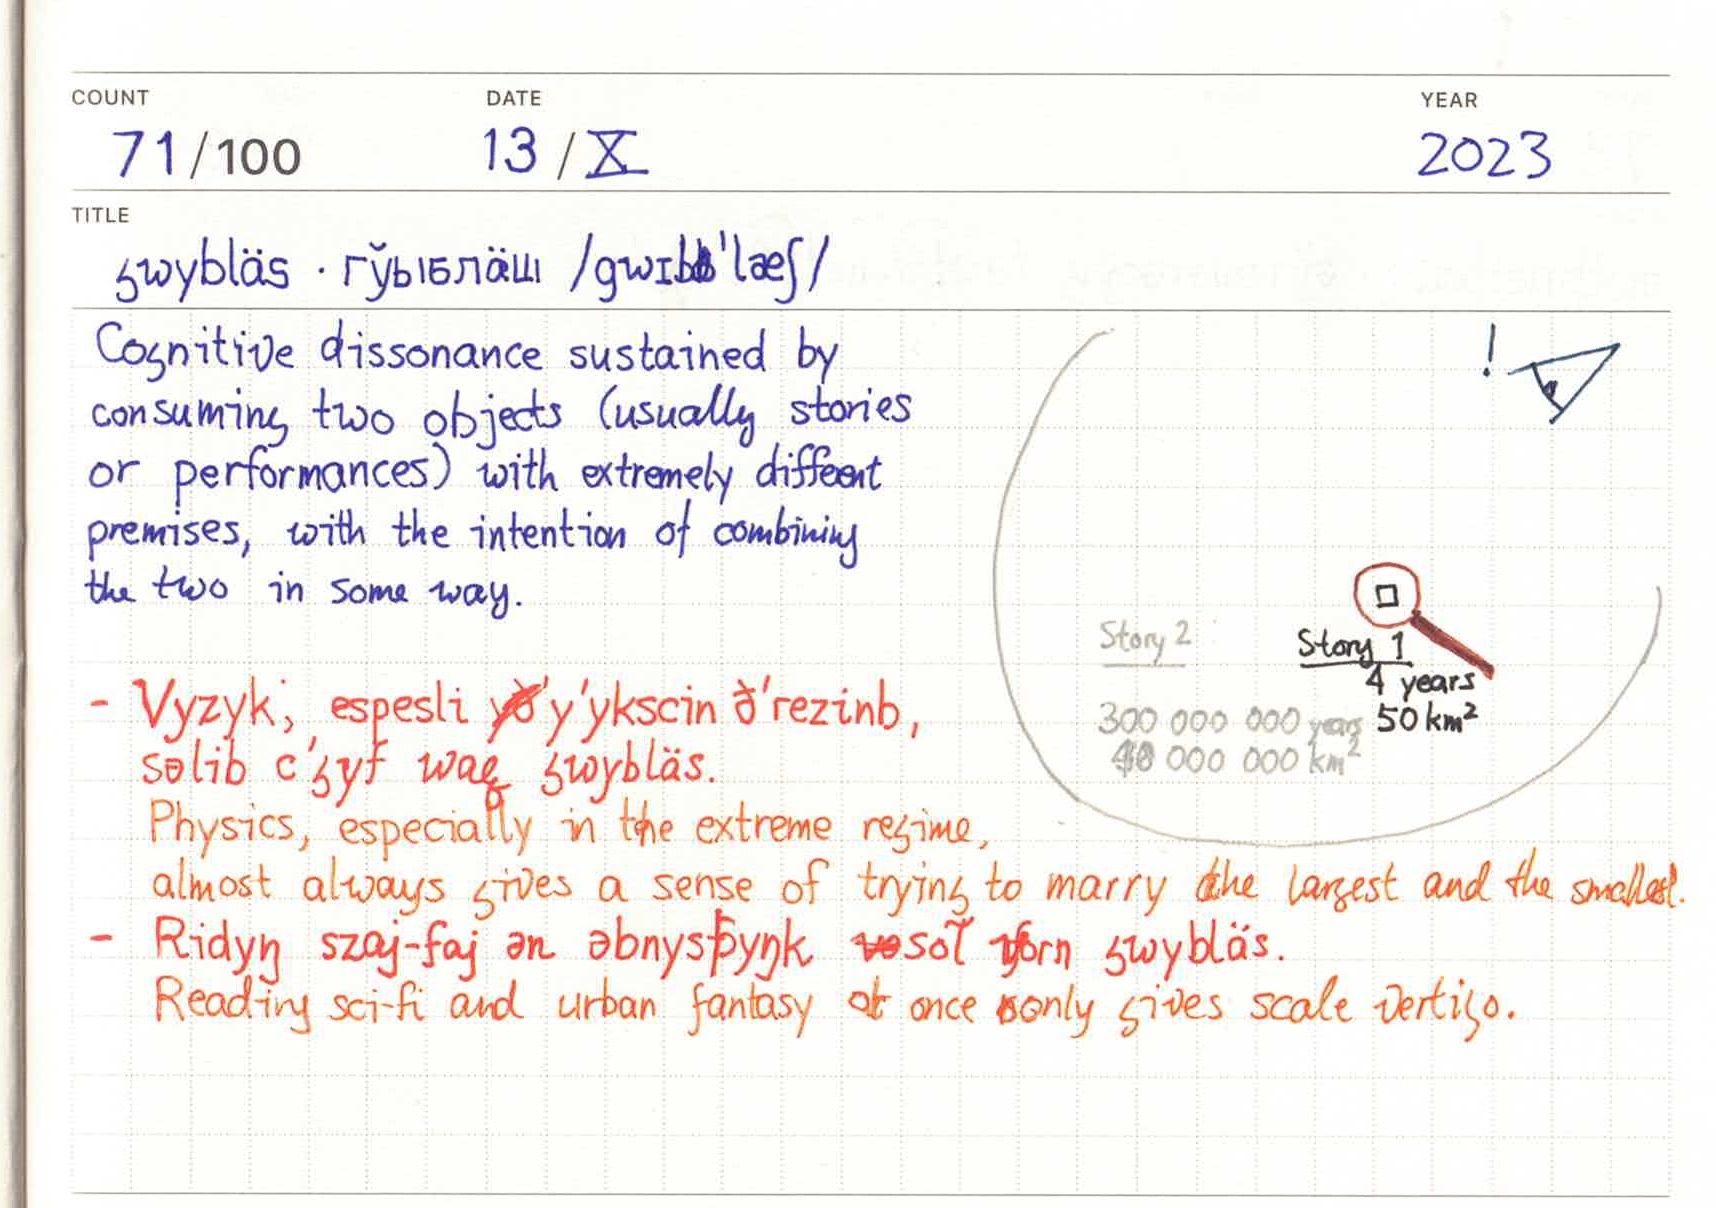 COUNT DATE YEAR
71/100 13/X 2023
TITLE
gwybläs · гўыблäш /gwɪb'læʃ/
Cognitive dissonance sustained by
consuming two objects (usually stories
or performances) with extremely different
premises, with the intention of combining
the two in some way.
!
Story 2
300 000 000 years
40 000 000 km²
Story 1
4 years
50 km²
- Vyzyk, espesli y'ykscin ð'rezinb,
səlib c'gyf waę gwybläs.
Physics, especially in the extreme regime,
almost always gives a sense of trying to marry the largest and the smallest.
- Ridyŋ szaj-faj ən əbnysþyŋk sol̆ vorn gwybläs.
Reading sci-fi and urban fantasy at once only gives scale vertigo.